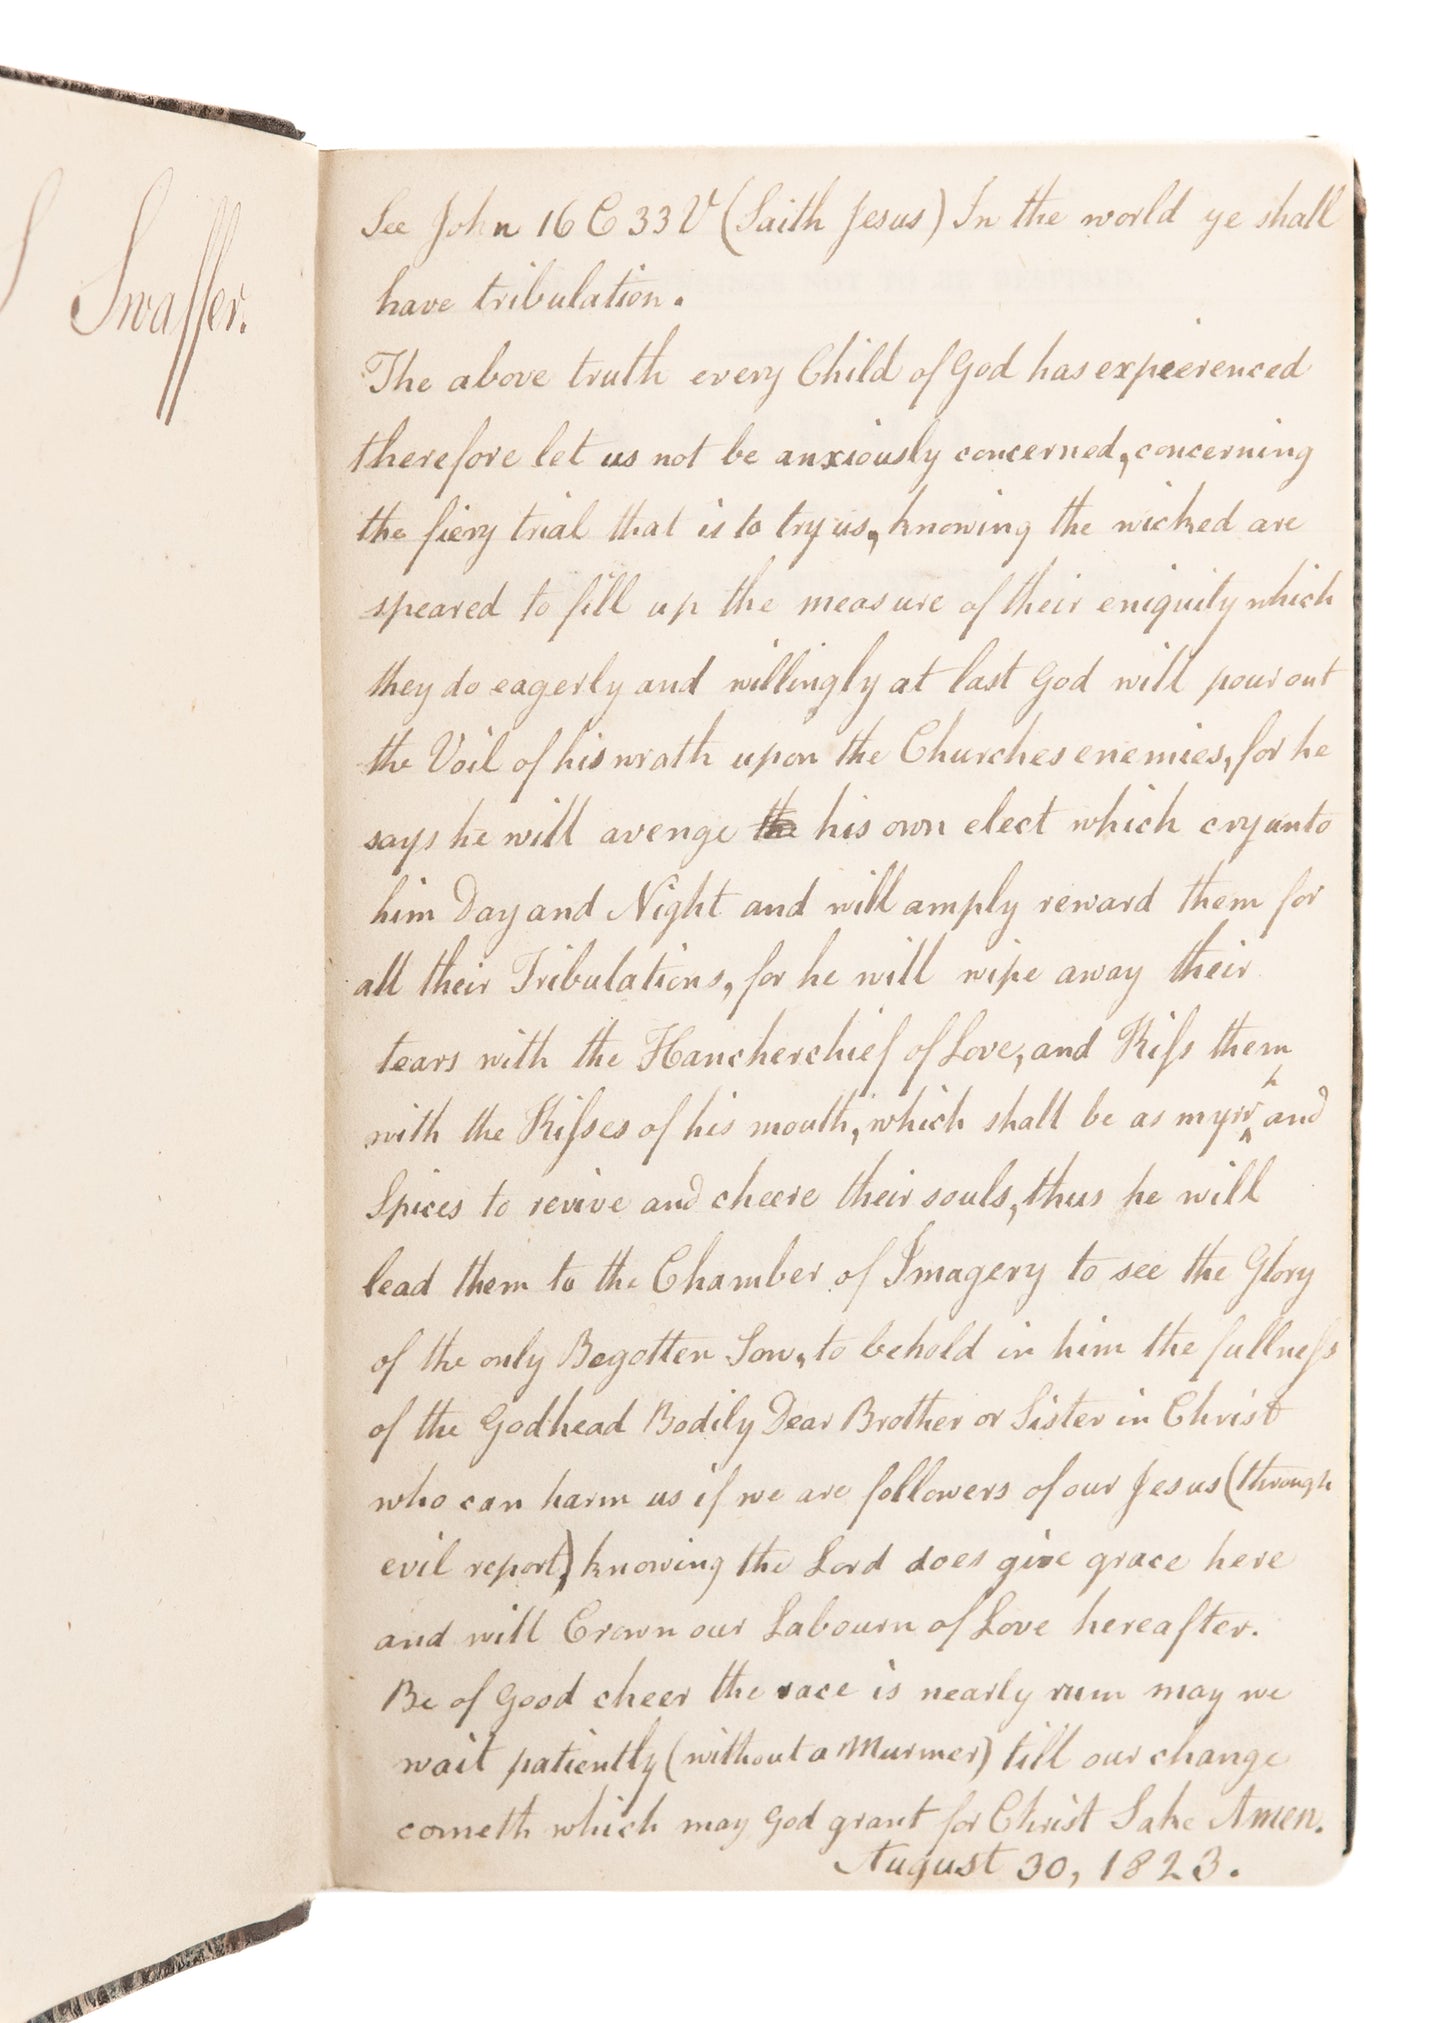 Swasser.
See John 16 C 33 V (Saith Jesus) In the world ye shall
have tribulation.
The above truth every Child of God has expeerenced
therefore let us not be anxiously concerned, concerning
the fiery trial that is to try us, knowing the wicked are
speared to fill up the measure of their eniquity which
they do eagerly and willingly at last God will pour out
the Voil of his wrath upon the Churches enemies, for he
says he will avenge the his own elect which cry unto
him Day and Night and will amply reward them for
all their Tribulations, for he will wipe away their
tears with the Hancherchief of Love, and Kiss them
with the Kisses of his mouth, which shall be as myrrh and
Spices to revive and cheere their souls, thus he will
lead them to the Chamber of Imagery to see the Glory
of the only Begotten Son, to behold in him the fullness
of the Godhead Bodily Dear Brother or Sister in Christ
who can harm us if we are followers of our Jesus (through
evil report) knowing the Lord does give grace here
and will Crown our Labourn of Love hereafter.
Be of Good cheer the race is nearly run may we
wait patiently (without a Murmer) till our change
cometh which may God grant for Christ Sake Amen.
August 30, 1823.